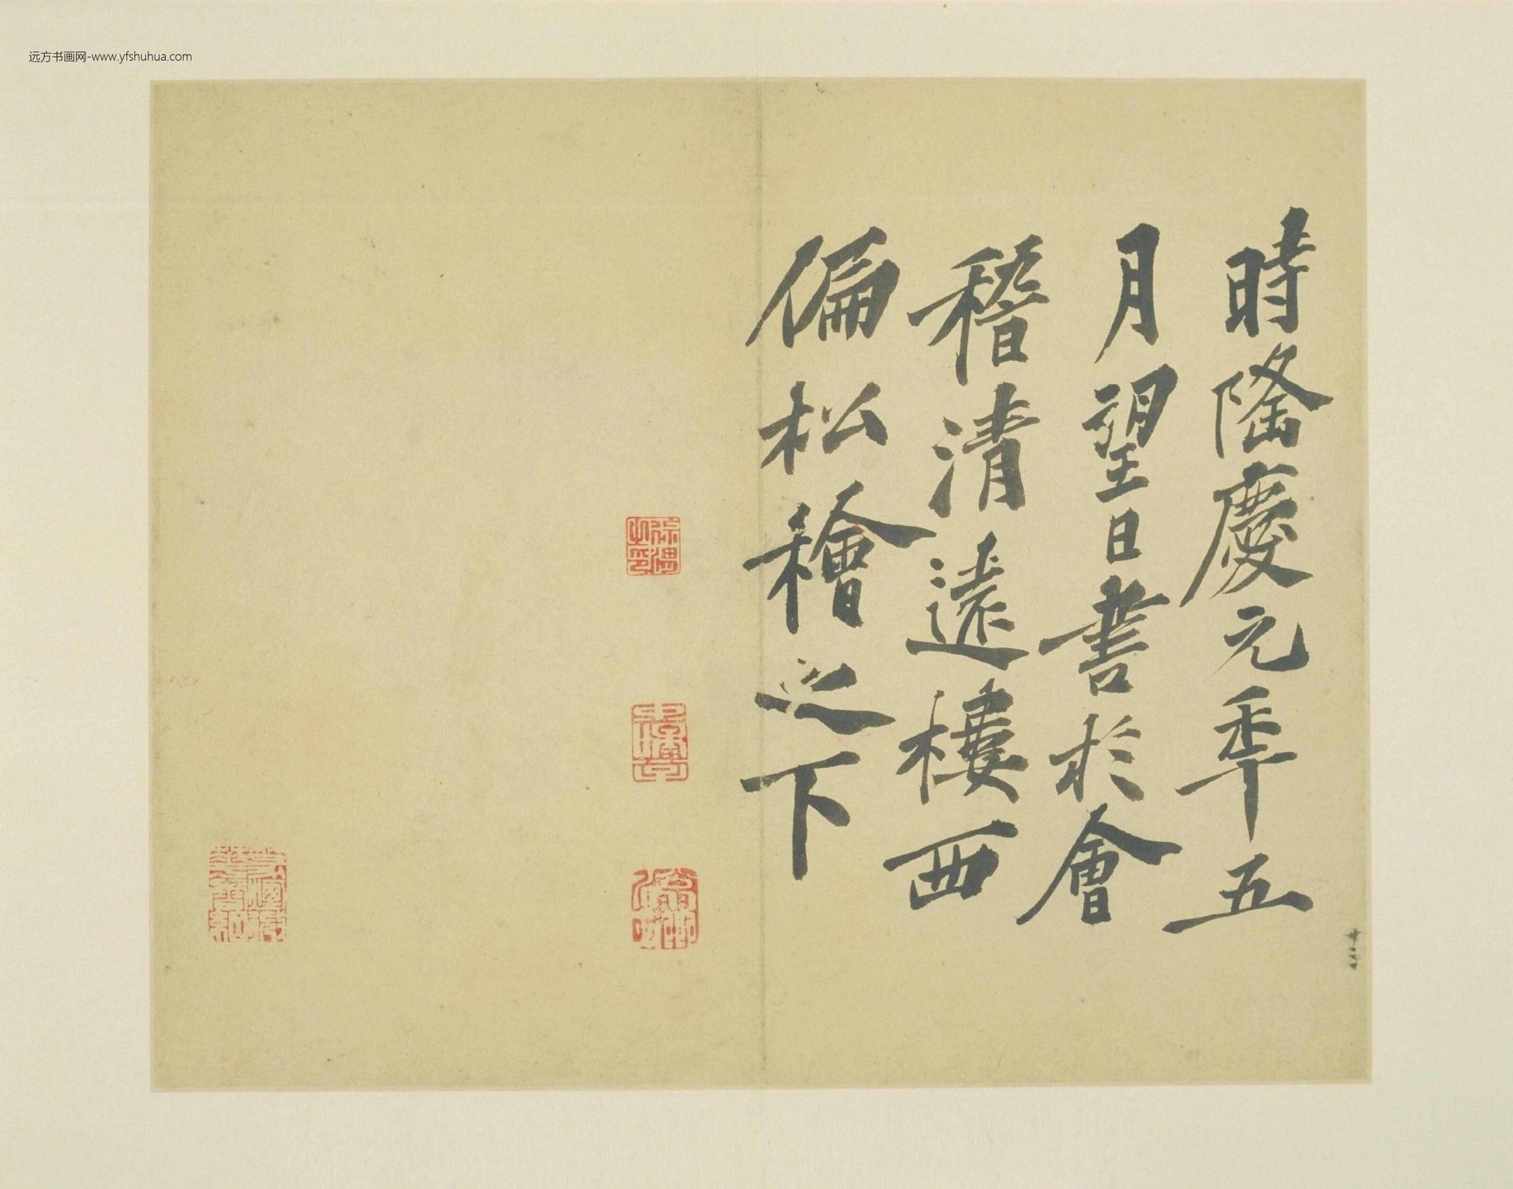 远方书画网-www.yfshuhua.com
時隆慶元秊五
月望日書於會
稽清遠樓西
偏松檜之下
徐渭之印